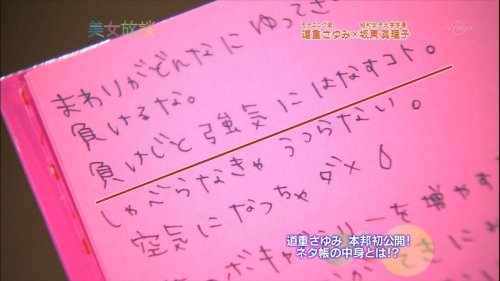 美女放談
モーニング娘。
道重さゆみ×坂東眞理子
昭和女子大学学長
TV TOKYO
まわりがどんなに ゆってき
負けるな。
負けじと強気に はなすコト。
しゃべらなきゃ うつらない。
空気になっちゃ ダメ
ボキャブラリーを 増やす
道重さゆみ 本邦初公開!
ネタ帳の中身とは!?